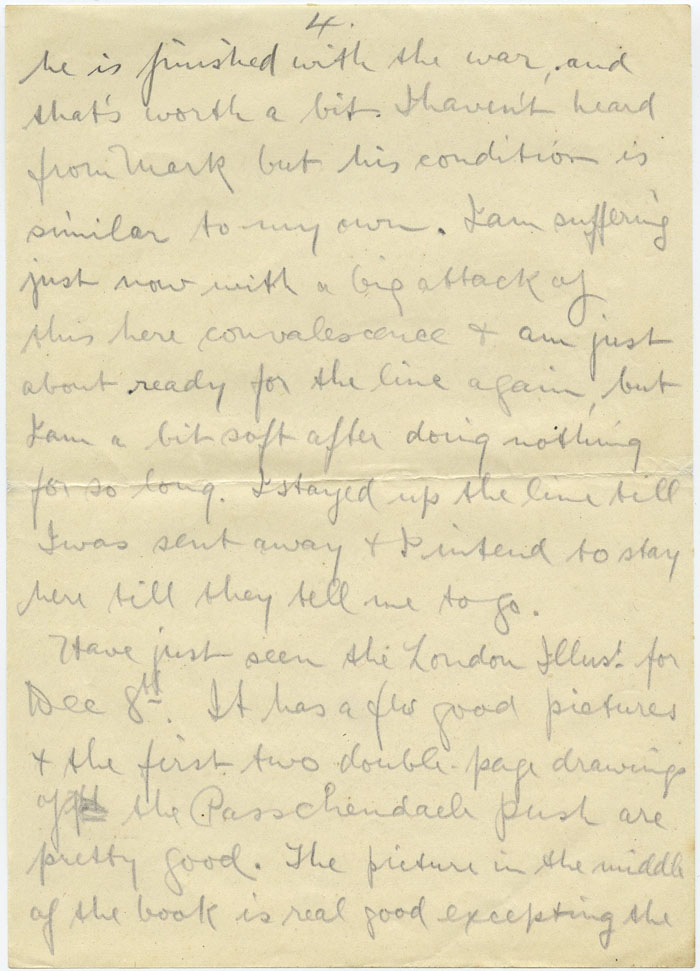 4.
he is finished with the war, and
that's worth a bit. I haven't heard
from Mark but his condition is
similar to my own. I am suffering
just now with a big attack of
this here convalescence & am just
about ready for the line again, but
I am a bit soft after doing nothing
for so long. I stayed up the line till
I was sent away & I intend to stay
here till they tell me to go.
Have just seen the London Illust. for
Dec 8th. It has a few good pictures
& the first two double-page drawings
of the Passchendaele push are
pretty good. The picture in the middle
of the book is real good excepting the